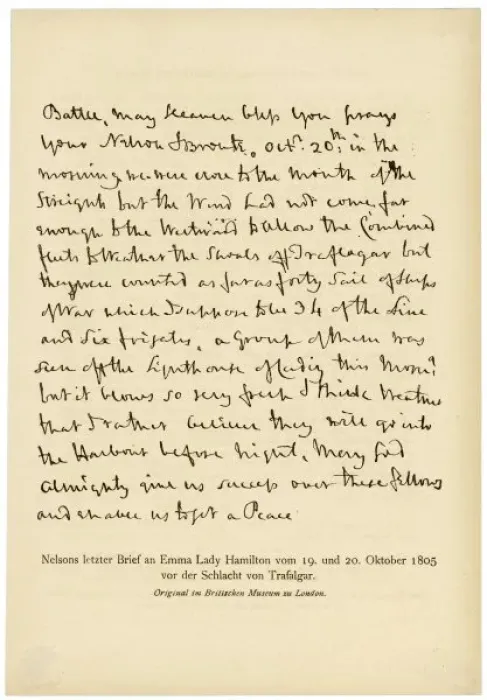 Battle, may heaven bless you prays
your Nelson & Bronte, Octr. 20th: in the
morning we were close to the mouth of the
Streights but the Wind had not come far
enough to the Westward to allow the Combined
fleets to Weather the Shoals off Traflagar but
they were counted as far as forty Sail of Ships
of War which I suppose to be 34 of the Line
and Six frigates, a Group of them was
seen off the Lighthouse of Cadiz this Morng
but it blows so very fresh I think weather
that I rather believe they will go into
the Harbour before night, May God
Almighty give us success over these fellows
and enable us to get a Peace
Nelsons letzter Brief an Emma Lady Hamilton vom 19. und 20. Oktober 1805
vor der Schlacht von Trafalgar.
Original im Britischen Museum zu London.